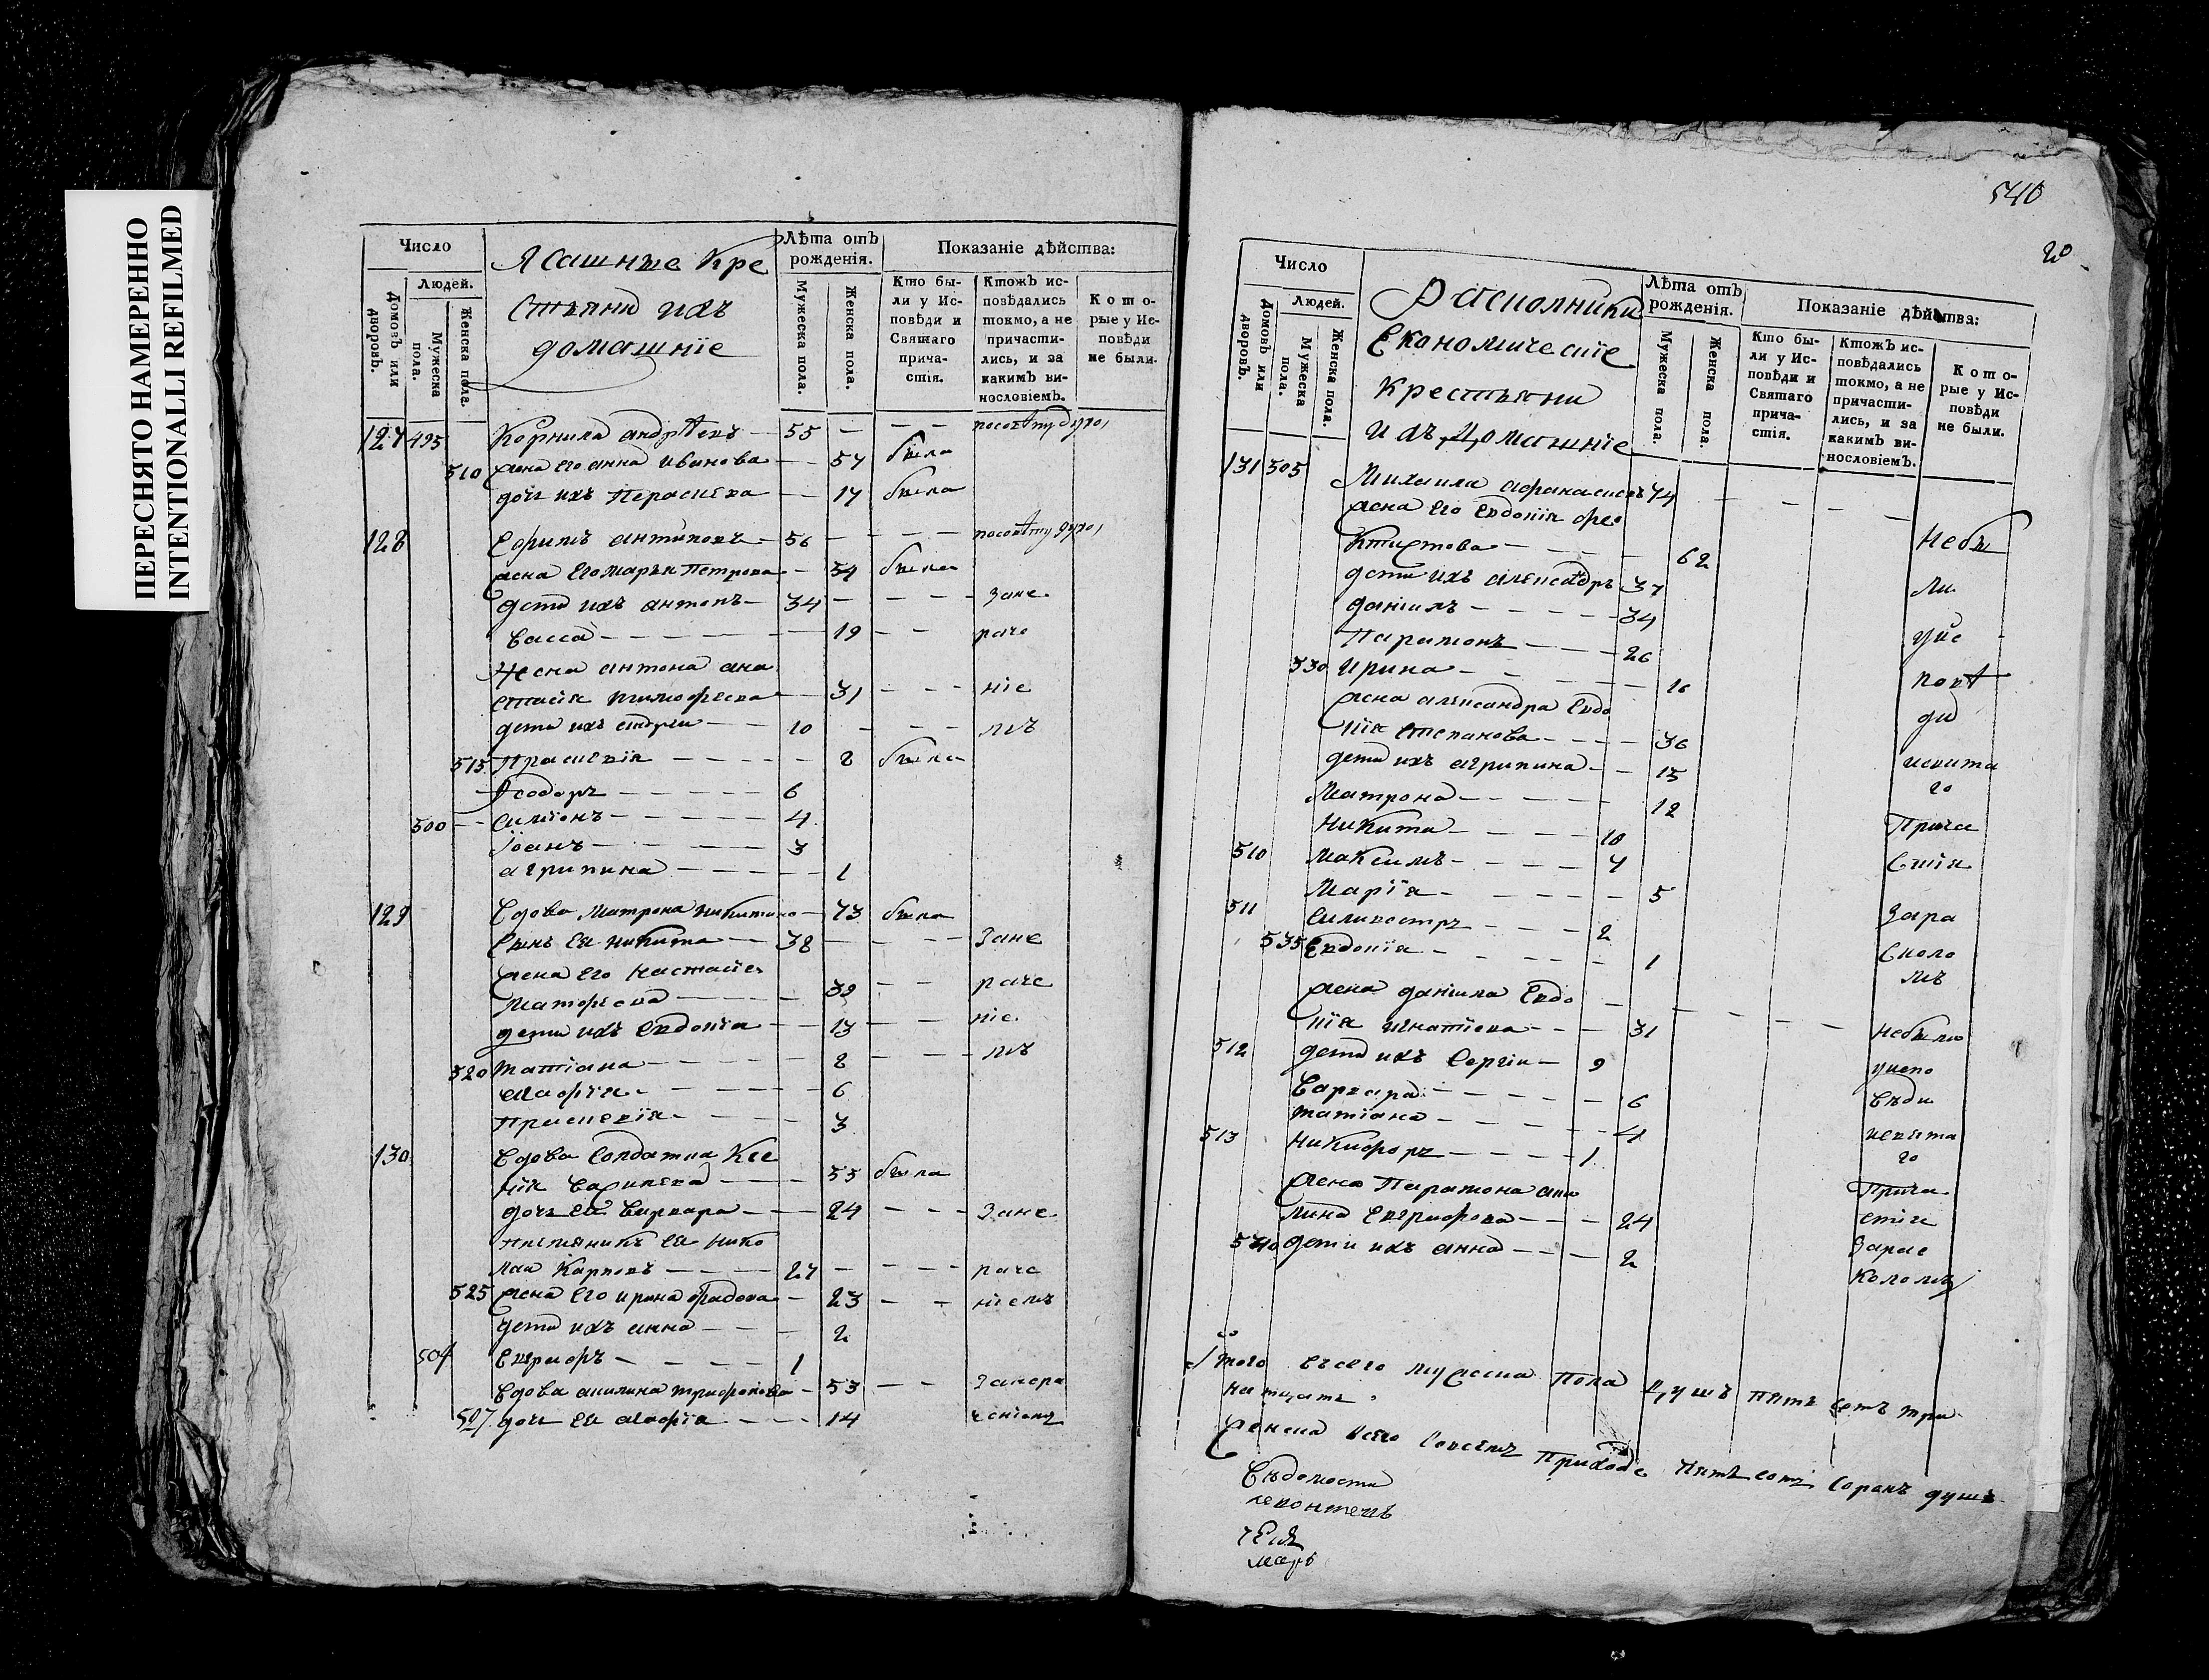 ПЕРЕСНЯТО НАМЕРЕННО
INTENTIONALLI REFILMED
Число
Людей.
Домовъ или дворовъ.
Мужеска пола.
Женска пола.
Ясашные Кре
стьяни ихъ
домашніе
Лѣта отъ рожденія.
Мужеска пола.
Женска пола.
Показаніе дѣйства:
Кто были у Исповѣди и Святаго причастія.
Ктожъ исповѣдались токмо, а не причастились, и за какимъ винословіемъ.
Которые у Исповѣди не были.
127 495 Корнила андрѣевъ 55 — — — посовѣту духо,
510 жена его анна иванова — 57 была
дочь ихъ Параскева — 17 была
128 Ефимъ антиповъ 56 — — — посовѣту духо,
жена его марья Петрова — 54 была
дети ихъ антонъ 34 — — — зане
васса — 19 — — раче
Жена антона ана
стасія тимофеева — 31 — — ніе
дети ихъ 10 — — мъ
515 Праскевія — 8 была
Ѳеодоръ — 6
500 симіонъ — 4
Іоанъ — 3
агрипина — 1
129 Вдова Матрона никитина — 73 была
Сынъ ея никита — 38 — — — зане
жена его настасія
— 39 — — раче
дети ихъ евдокіа — 13 — — ніе
520 татіана — 8 — — мъ
— 6
Праскевія — 3
130 Вдова солдатка Ксе
нія васильева — 55 была
дочь ея варвара — 24 — — — зане
племяникъ ея нико
лай Карповъ — 27 — — — раче
525 жена его ирина — 23 — — ніемъ
дети ихъ анна — 2
504 Евграфъ — 1
Вдова акилина трифонова — 53 — —
527 дочь ея — 14
540
20
Число
Людей.
Домовъ или дворовъ.
Мужеска пола.
Женска пола.
Экономическіе
Крестьяни
ихъ домашніе
Лѣта отъ рожденія.
Мужеска пола.
Женска пола.
Показаніе дѣйства:
Кто были у Исповѣди и Святаго причастія.
Ктожъ исповѣдались токмо, а не причастились, и за какимъ винословіемъ.
Которые у Исповѣди не были.
131 505 Михаила афанасиевъ 74 — — — —
жена его Евдокія фео
ктистова — 62 небы
дети ихъ александръ 37 ли
даніилъ — 34
Парамонъ — 26 уис
530 Ирина — 16 повѣ
жена александра Евдо ди
кія степанова — 36
дети ихъ агрипина — 15 исвята
Матрона — 12 го
Никита — 10 Прича
510 Максимъ — 7 Стія
Марія — 5
511 Силивестръ — 2 Зара
535 Евдокія — 1 Сколо
мъ
жена даніила Евдо
кія игнатіева — 31 небыли
512 дети ихъ Сергіи — 9 уиспо
Варвара — 6 вѣди
татіана — 4 исвята
513 Никифоръ — 1 го
жена Парамона аки Прича
лина Евграфова — 24 стія
540 дети ихъ анна — 2 Зарас
коломъ
Итого всего мужеска Пола Душъ пять сотъ три
натцать
женска всего Пять сотъ Сорокъ душъ